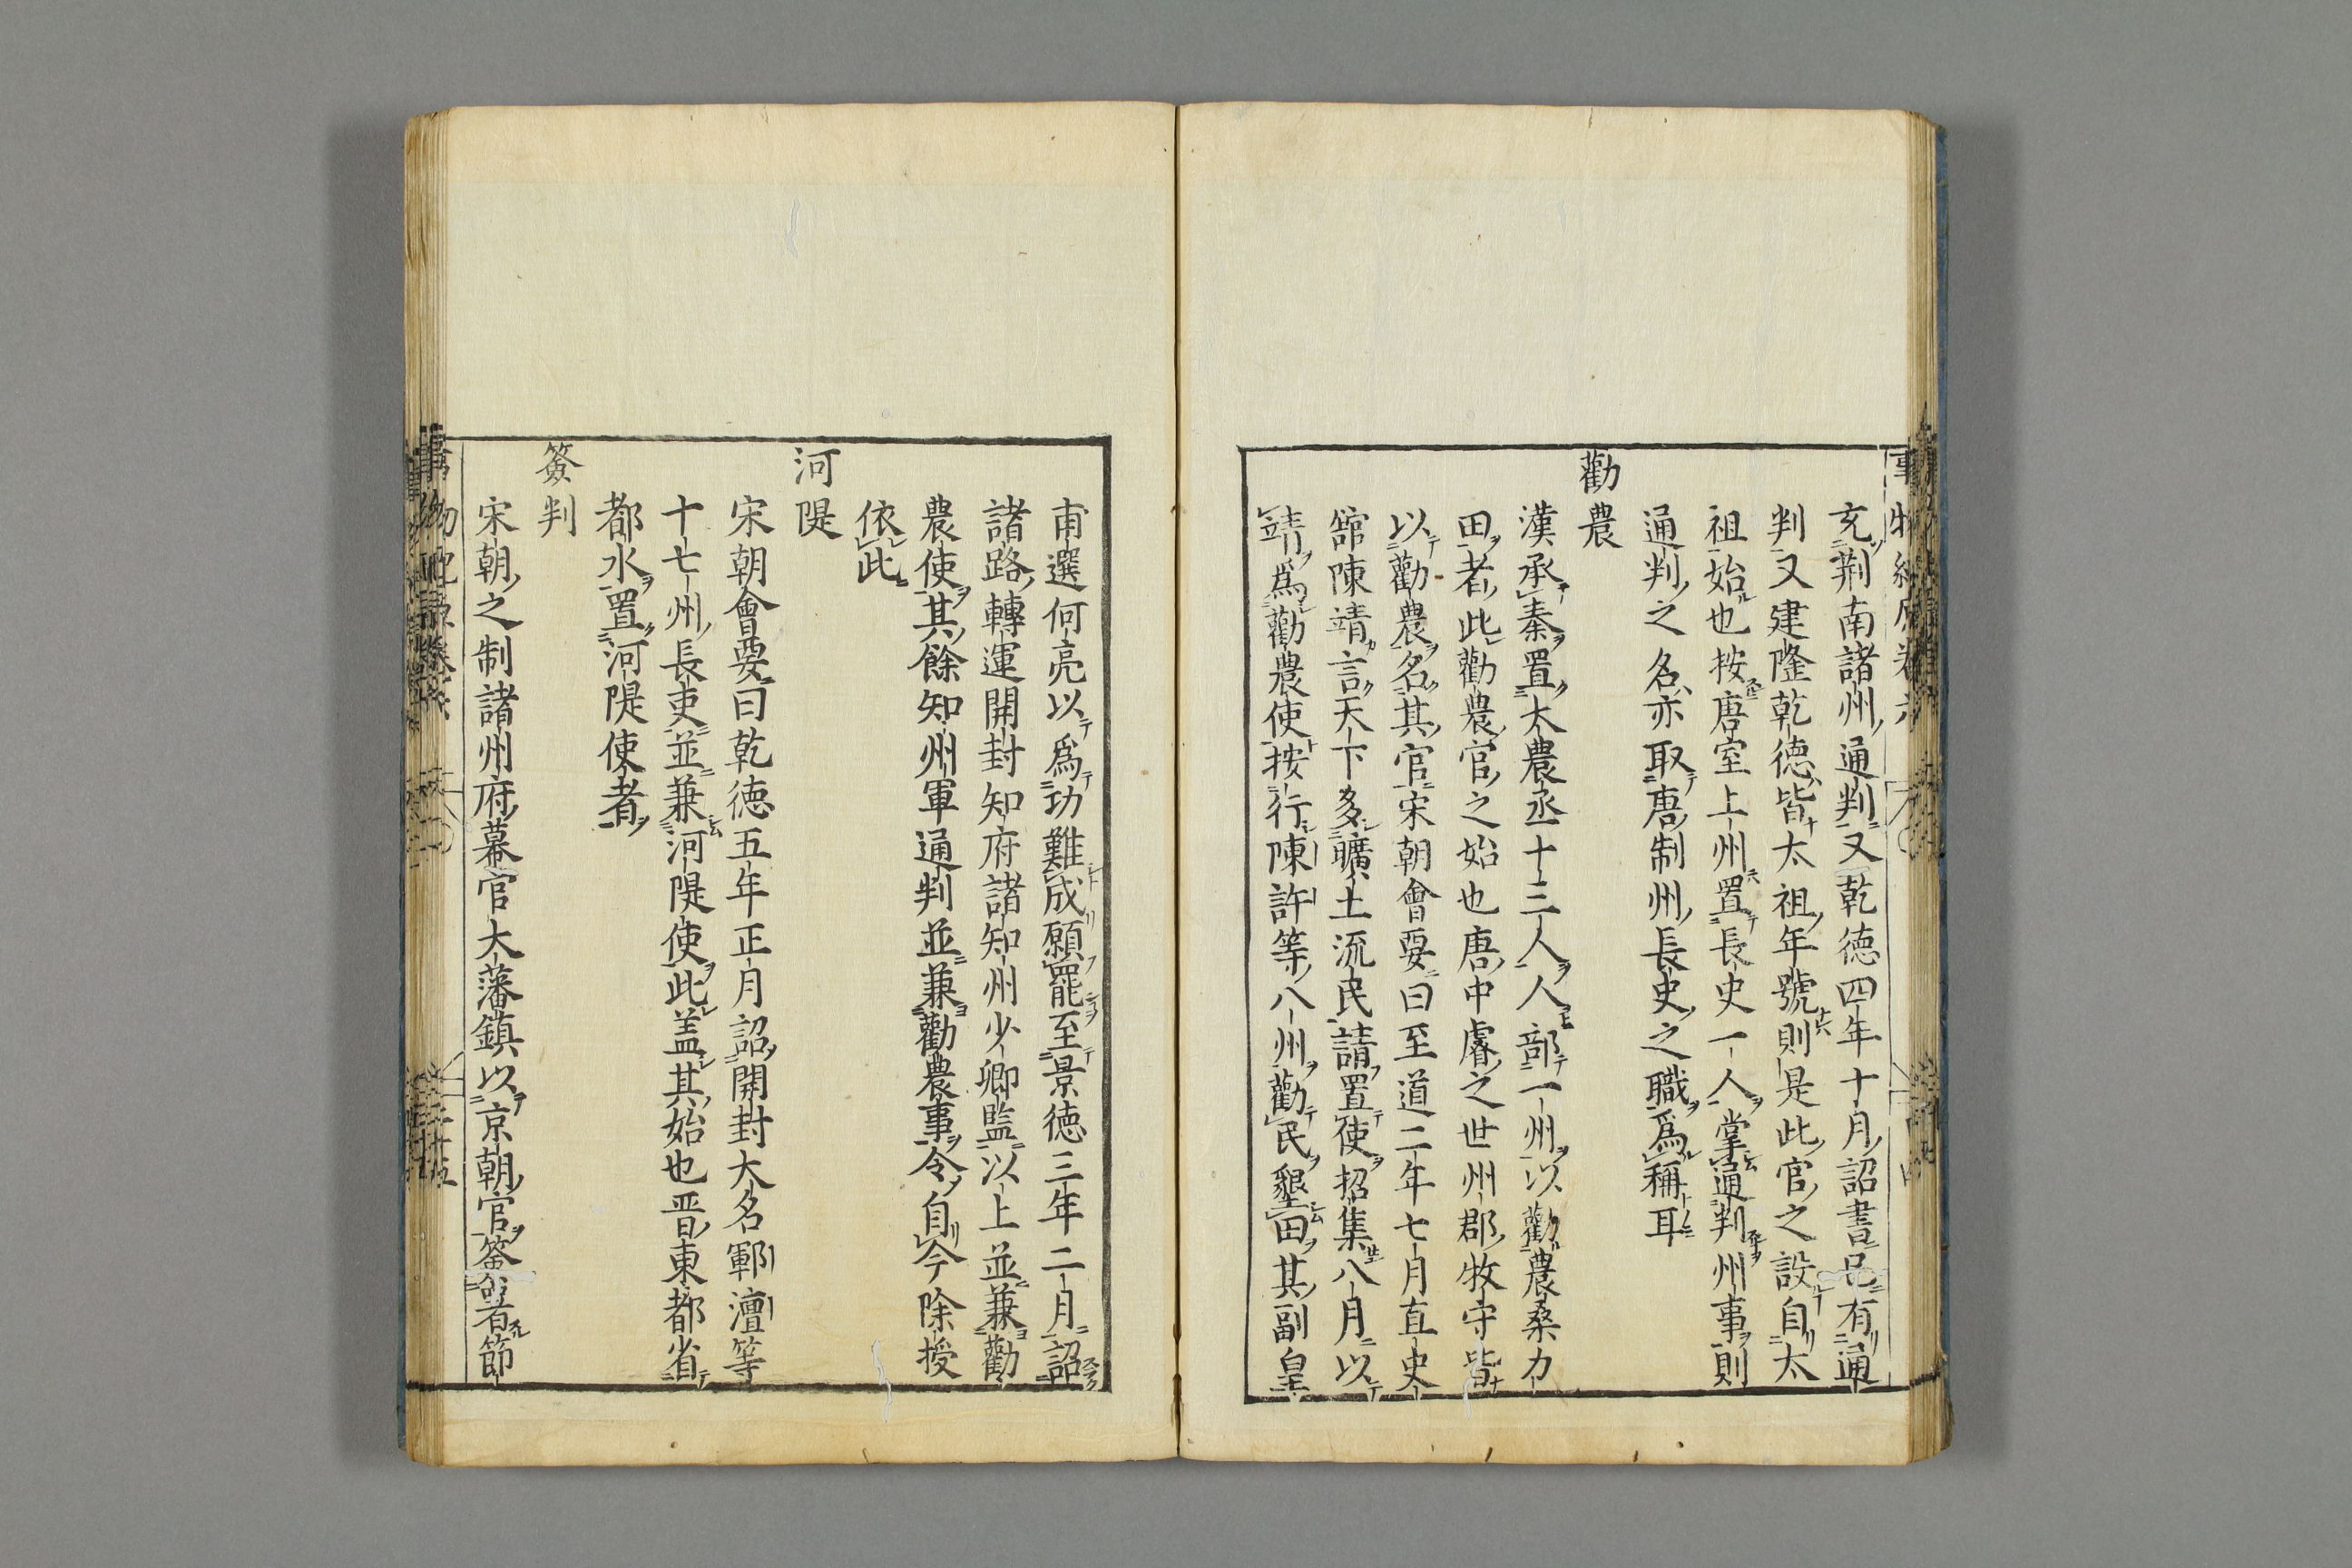 充荆南諸州通判又乾德四年十月詔書已有通
判又建隆乾德皆太祖年號則是此官之設自太
祖始也按唐室上州置長史一人掌通判州事則
通判之名亦取唐制州長史之職爲稱耳
勸農
漢承秦置大農丞十三人人部一州以勸農桑力
田者此勸農官之始也唐中睿之世州郡牧守皆
以勸農名其官宋朝會要曰至道二年七月直史
舘陳靖言天下多曠土流民請置使招集八月以
靖爲勸農使按行陳許等八州勸民墾田其副皇
甫選何亮以爲功難成願罷至景德三年二月詔
諸路轉運開封知府諸知州少卿監以上並兼勸
農使其餘知州軍通判並兼勸農事令自今除授
依此
河隄
宋朝會要曰乾德五年正月詔開封大名鄆澶等
十七州長吏並兼河隄使此盖其始也晋東都省
都水置河隄使者
簽判
宋朝之制諸州府幕官大藩鎮以京朝官簽署節